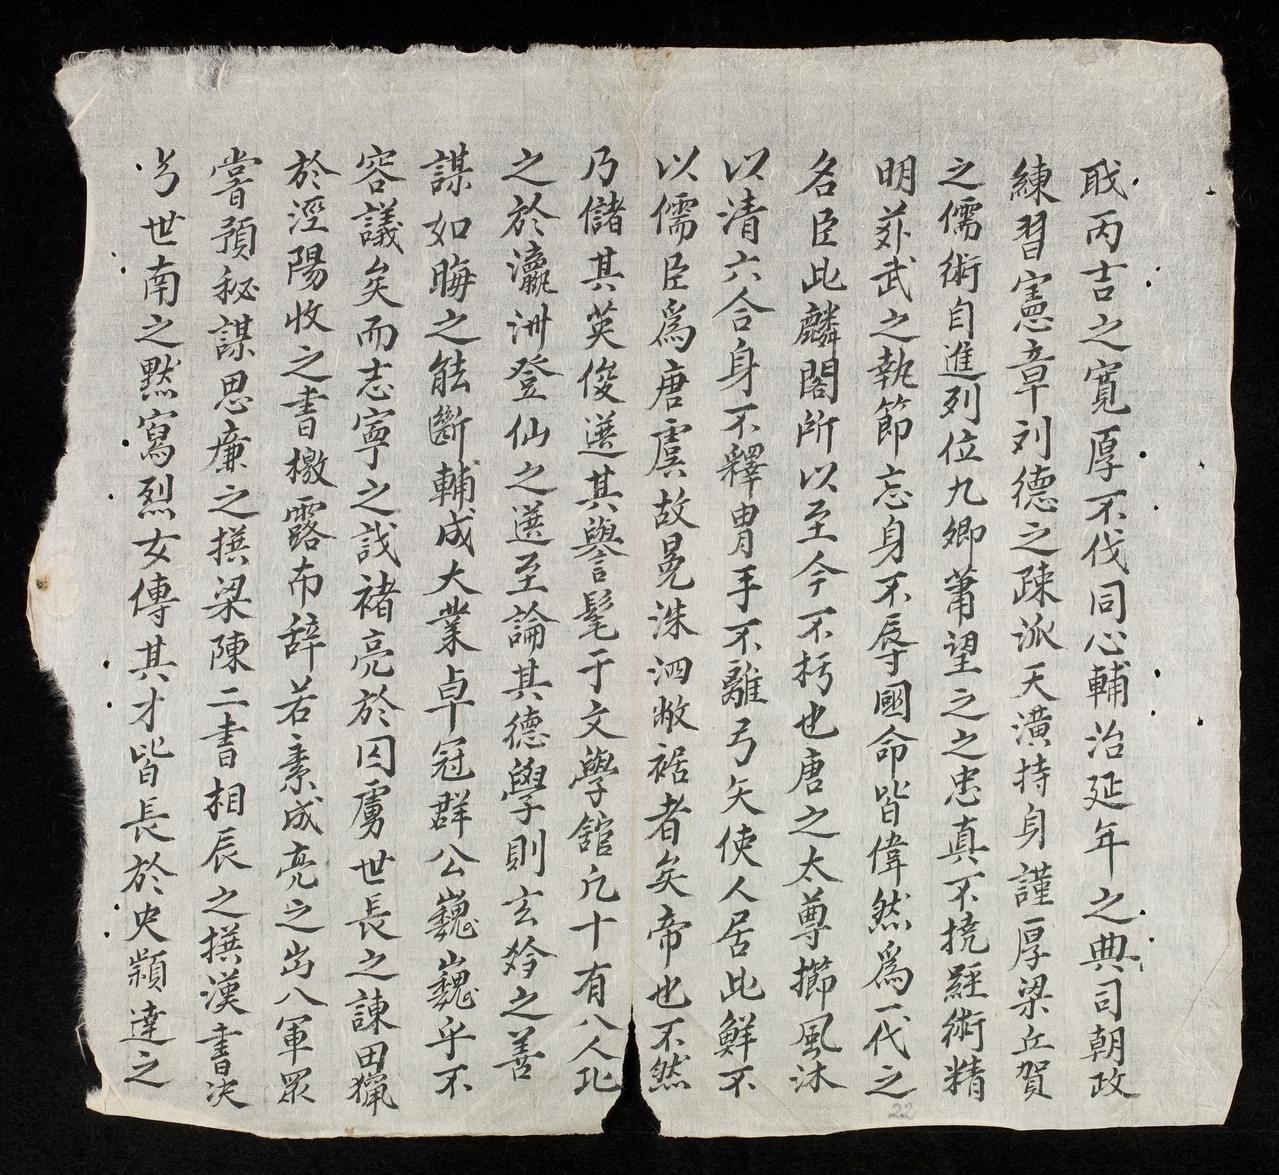 戢丙吉之寬厚不伐同心輔治延年之典司朝政
練習憲章刘德之踈派天潢持身謹厚梁丘賀
之儒術自進列位九卿蕭望之之忠真不撓經術精
明蘇武之執節忘身不辱國命皆偉然爲一代之
名臣此麟閣所以至今不朽也唐之太尊擳風沐
以清六合身不釋胄手不離弓矢使人居此鮮不
以儒臣爲唐虞故冕洙泗敝裾者矣帝也不然
乃儲其英俊選其譽髦于文學舘凢十有八人比
之於瀛洲登仙之選至論其德學則玄齡之善
謀如晦之能斷輔成大業卓冠群公巍巍乎不
容議矣而志寧之諓褚亮於囚虜世長之諫田獵
於涇陽收之書檄露布辞若素成亮之出入軍眾
嘗預秘謀思廉之撰梁陳二書相辰之撰漢書决
兮世南之黙寫烈女傳其才皆長於史頴達之
22